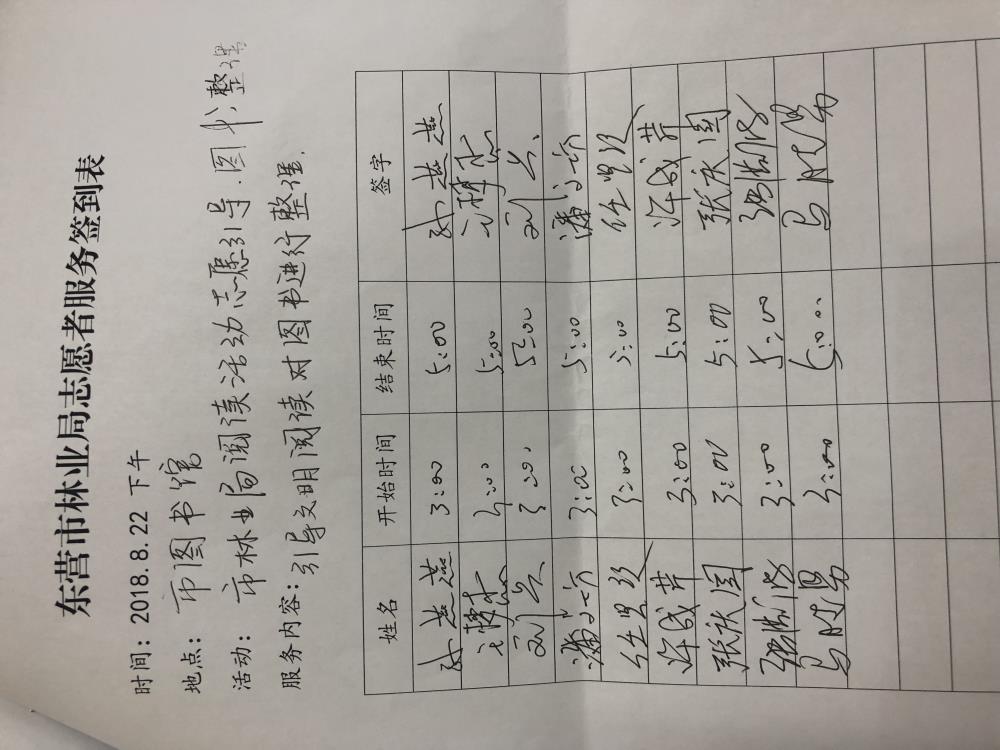 东营市林业局志愿者服务签到表
时间：2018.8.22 下午
地点：市图书馆
活动：市林业局阅读活动志愿引导.图书整理
服务内容：引导文明阅读对图书进行整理.
姓名 开始时间 结束时间 签字
孙燕燕 3:00 5:00 孙燕燕
3:00 5:00
3:00 5:00
潘 3:00 5:00 潘
任 3:00 5:00 任
许成芹 3:00 5:00 许成芹
张庆国 3:00 5:00 张庆国
3:00 5:00
马 3:00 5:00 马